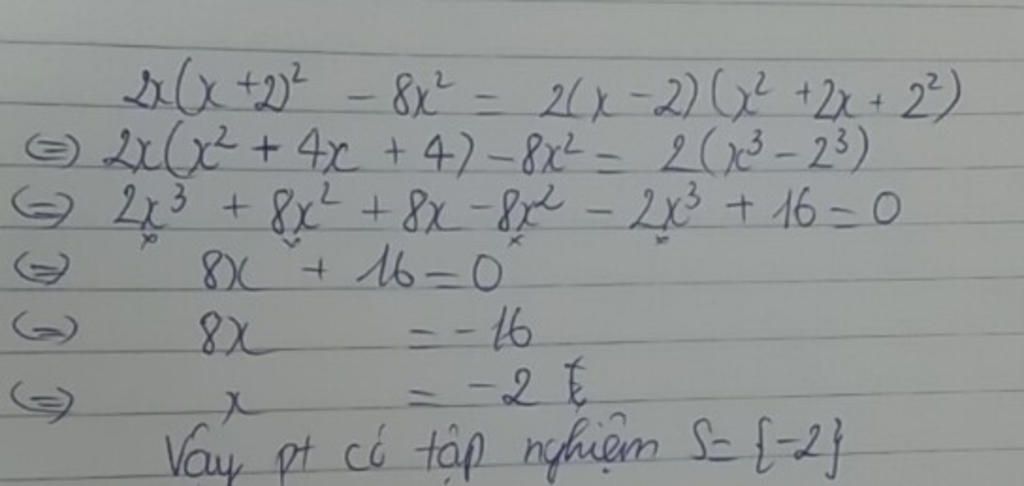 2x(x+2)² - 8x² = 2(x-2)(x² + 2x + 2²)
(=) 2x(x² + 4x + 4) - 8x² = 2(x³ - 2³)
(=) 2x³ + 8x² + 8x - 8x² - 2x³ + 16 = 0
(=) 8x + 16 = 0
(=) 8x = -16
(=) x = -2
Vậy pt có tập nghiệm S = {-2}